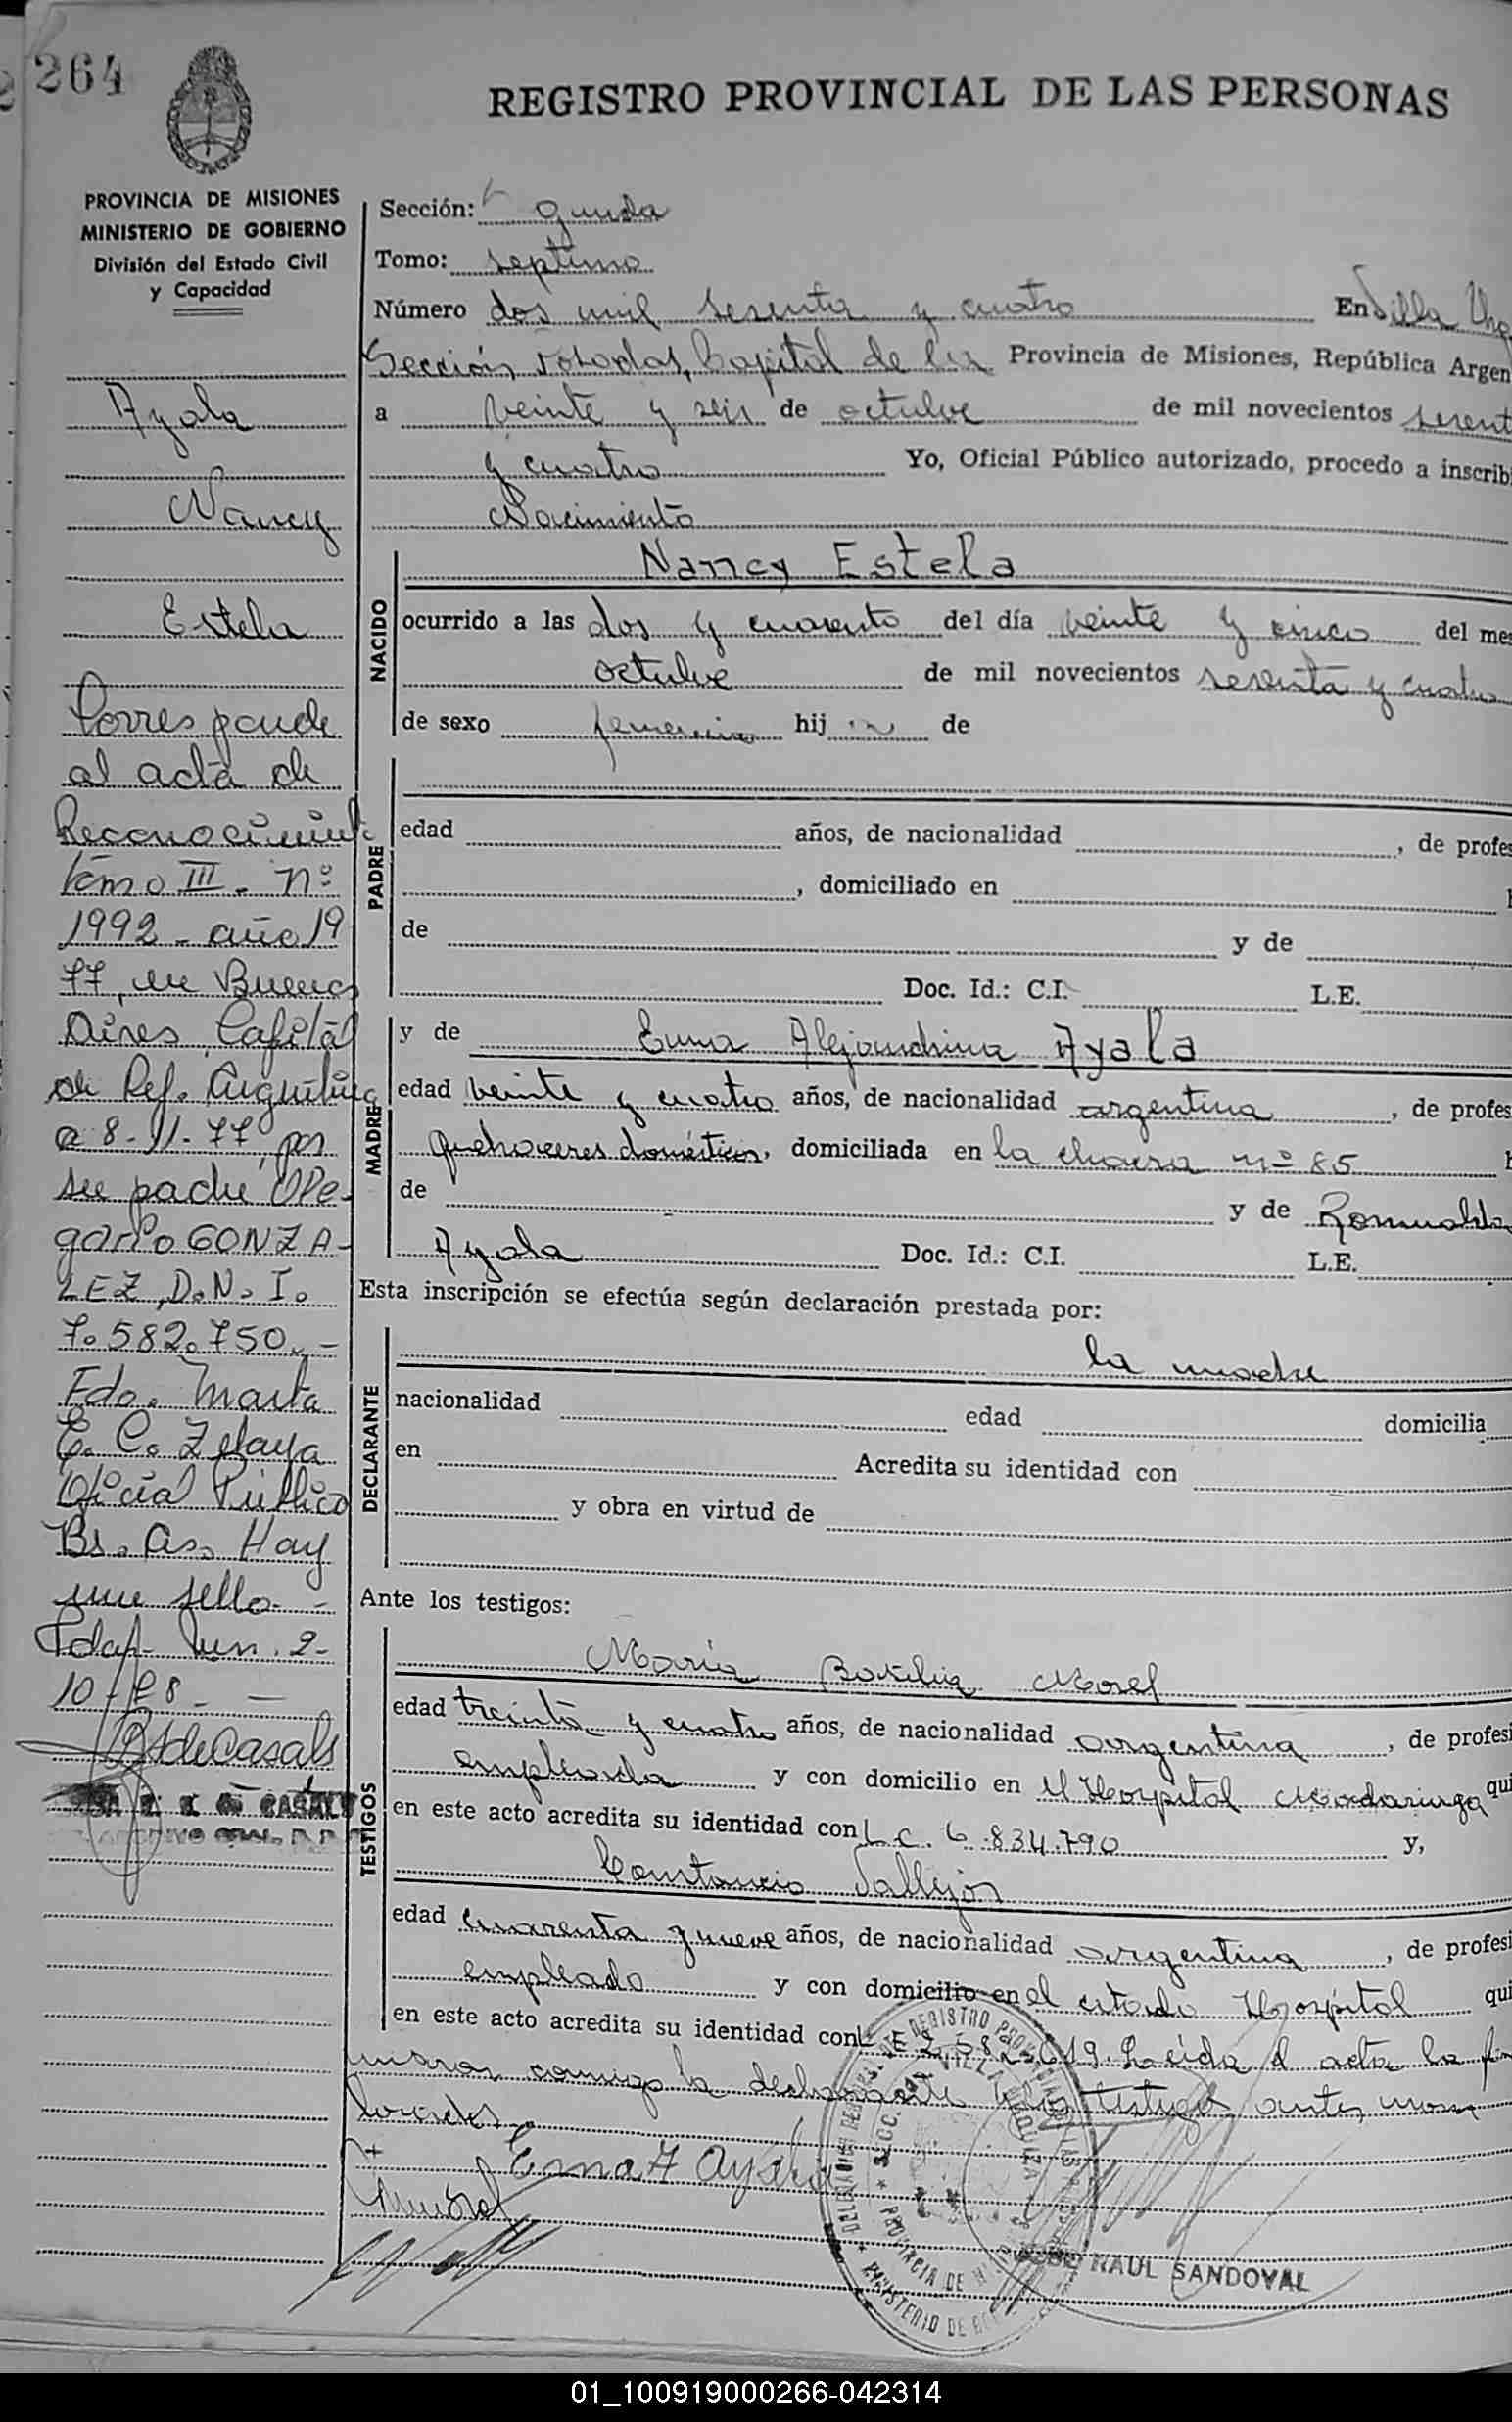 264
REGISTRO PROVINCIAL DE LAS PERSONAS
PROVINCIA DE MISIONES
MINISTERIO DE GOBIERNO
División del Estado Civil
y Capacidad
Ayala
Nancy
Estela
Corresponde
al acta de
Reconocimient
tomo III. nº
1992 - año 19
77, en Buenos
Aires, Capital
de Rep. Argentina
a 8-11-77, por
su padre Ole-
gario GONZA-
LEZ, D.N.I.
7.582.750.-
Fdo. Marta
E. C. Zelaya
Oficial Público
Bs. As. Hay
un sello -
Pdas. 2-
10-
BdeCasals
CASALS
Sección: gunda
Tomo: septimo
Número dos mil sesenta y cuatro En Villa Urq
Sección Rotodas, Capital de la Provincia de Misiones, República Argen
a veinte y seis de octubre de mil novecientos setent
y cuatro Yo, Oficial Público autorizado, procedo a inscrib
Nacimiento
NACIDO
Nancy Estela
ocurrido a las dos y cuarenta del día veinte y cinco del mes
octubre de mil novecientos setenta y cuatro
de sexo femenino hij a de
PADRE
edad años, de nacionalidad , de profes
, domiciliado en
de y de
Doc. Id.: C.I. L.E.
MADRE
y de Ema Alejandrina Ayala
edad veinte y cuatro años, de nacionalidad argentina , de profes
quehaceres domésticos, domiciliada en la chacra nº 85
de y de Romualda
Ayala Doc. Id.: C.I. L.E.
Esta inscripción se efectúa según declaración prestada por:
DECLARANTE
la madre
nacionalidad edad domicilia
en Acredita su identidad con
y obra en virtud de
Ante los testigos:
TESTIGOS
María Basilia Morel
edad treinta y cuatro años, de nacionalidad argentina , de profesi
empleada y con domicilio en el Hospital Madariaga qui
en este acto acredita su identidad con L.C. 6.834.790 y,
Constancio Vallejos
edad cuarenta y nueve años, de nacionalidad argentina , de profesi
empleado y con domicilio en el citado Hospital qui
en este acto acredita su identidad con L.E. Leída el acta la fir
conmigo la declarante y los testigos antes mencio
Ema A Ayala
RAUL SANDOVAL
01_100919000266-042314